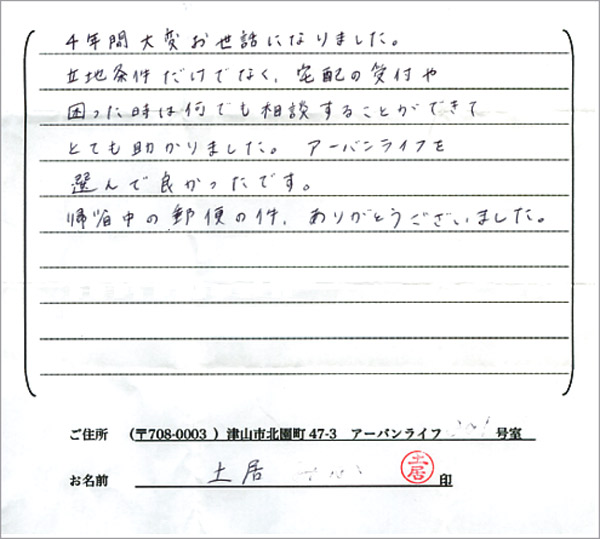 4年間大変お世話になりました。
立地条件だけでなく、宅配の受付や
困った時は何でも相談することができて
とても助かりました。 アーバンライフを
選んで良かったです。
帰省中の郵便の件、ありがとうございました。
ご住所 (〒708-0003 ) 津山市北園町 47-3 アーバンライフ 号室
お名前 土居 土居 印